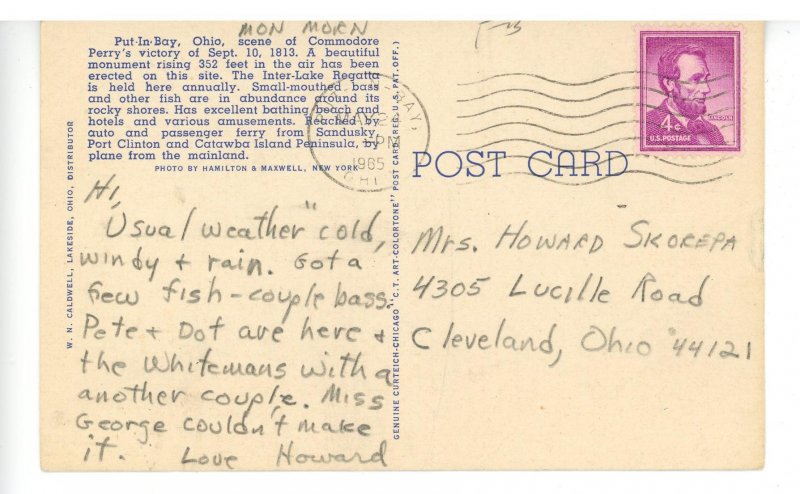 MON MORN
Put-In-Bay, Ohio, scene of Commodore
Perry's victory of Sept. 10, 1813. A beautiful
monument rising 352 feet in the air has been
erected on this site. The Inter-Lake Regatta
is held here annually. Small-mouthed bass
and other fish are in abundance around its
rocky shores. Has excellent bathing beach and
hotels and various amusements. Reached by
auto and passenger ferry from Sandusky,
Port Clinton and Catawba Island Peninsula, by
plane from the mainland.
PHOTO BY HAMILTON & MAXWELL, NEW YORK
W. N. CALDWELL, LAKESIDE, OHIO, DISTRIBUTOR
Hi,
Usual weather "cold,
windy + rain. Got a
few fish - couple bass.
Pete + Dot are here +
the Whitemans with a
another couple. Miss
George couldn't make
it. Love Howard
GENUINE CURTEICH-CHICAGO "C.T. ART-COLORTONE" POST CARD (REG. U.S. PAT. OFF.)
BAY,
MAY 24
PM
1965
OHI
4¢
LINCOLN
U.S. POSTAGE
POST CARD
Mrs. HOWARD SKOREPA
4305 Lucille Road
Cleveland, Ohio 44121